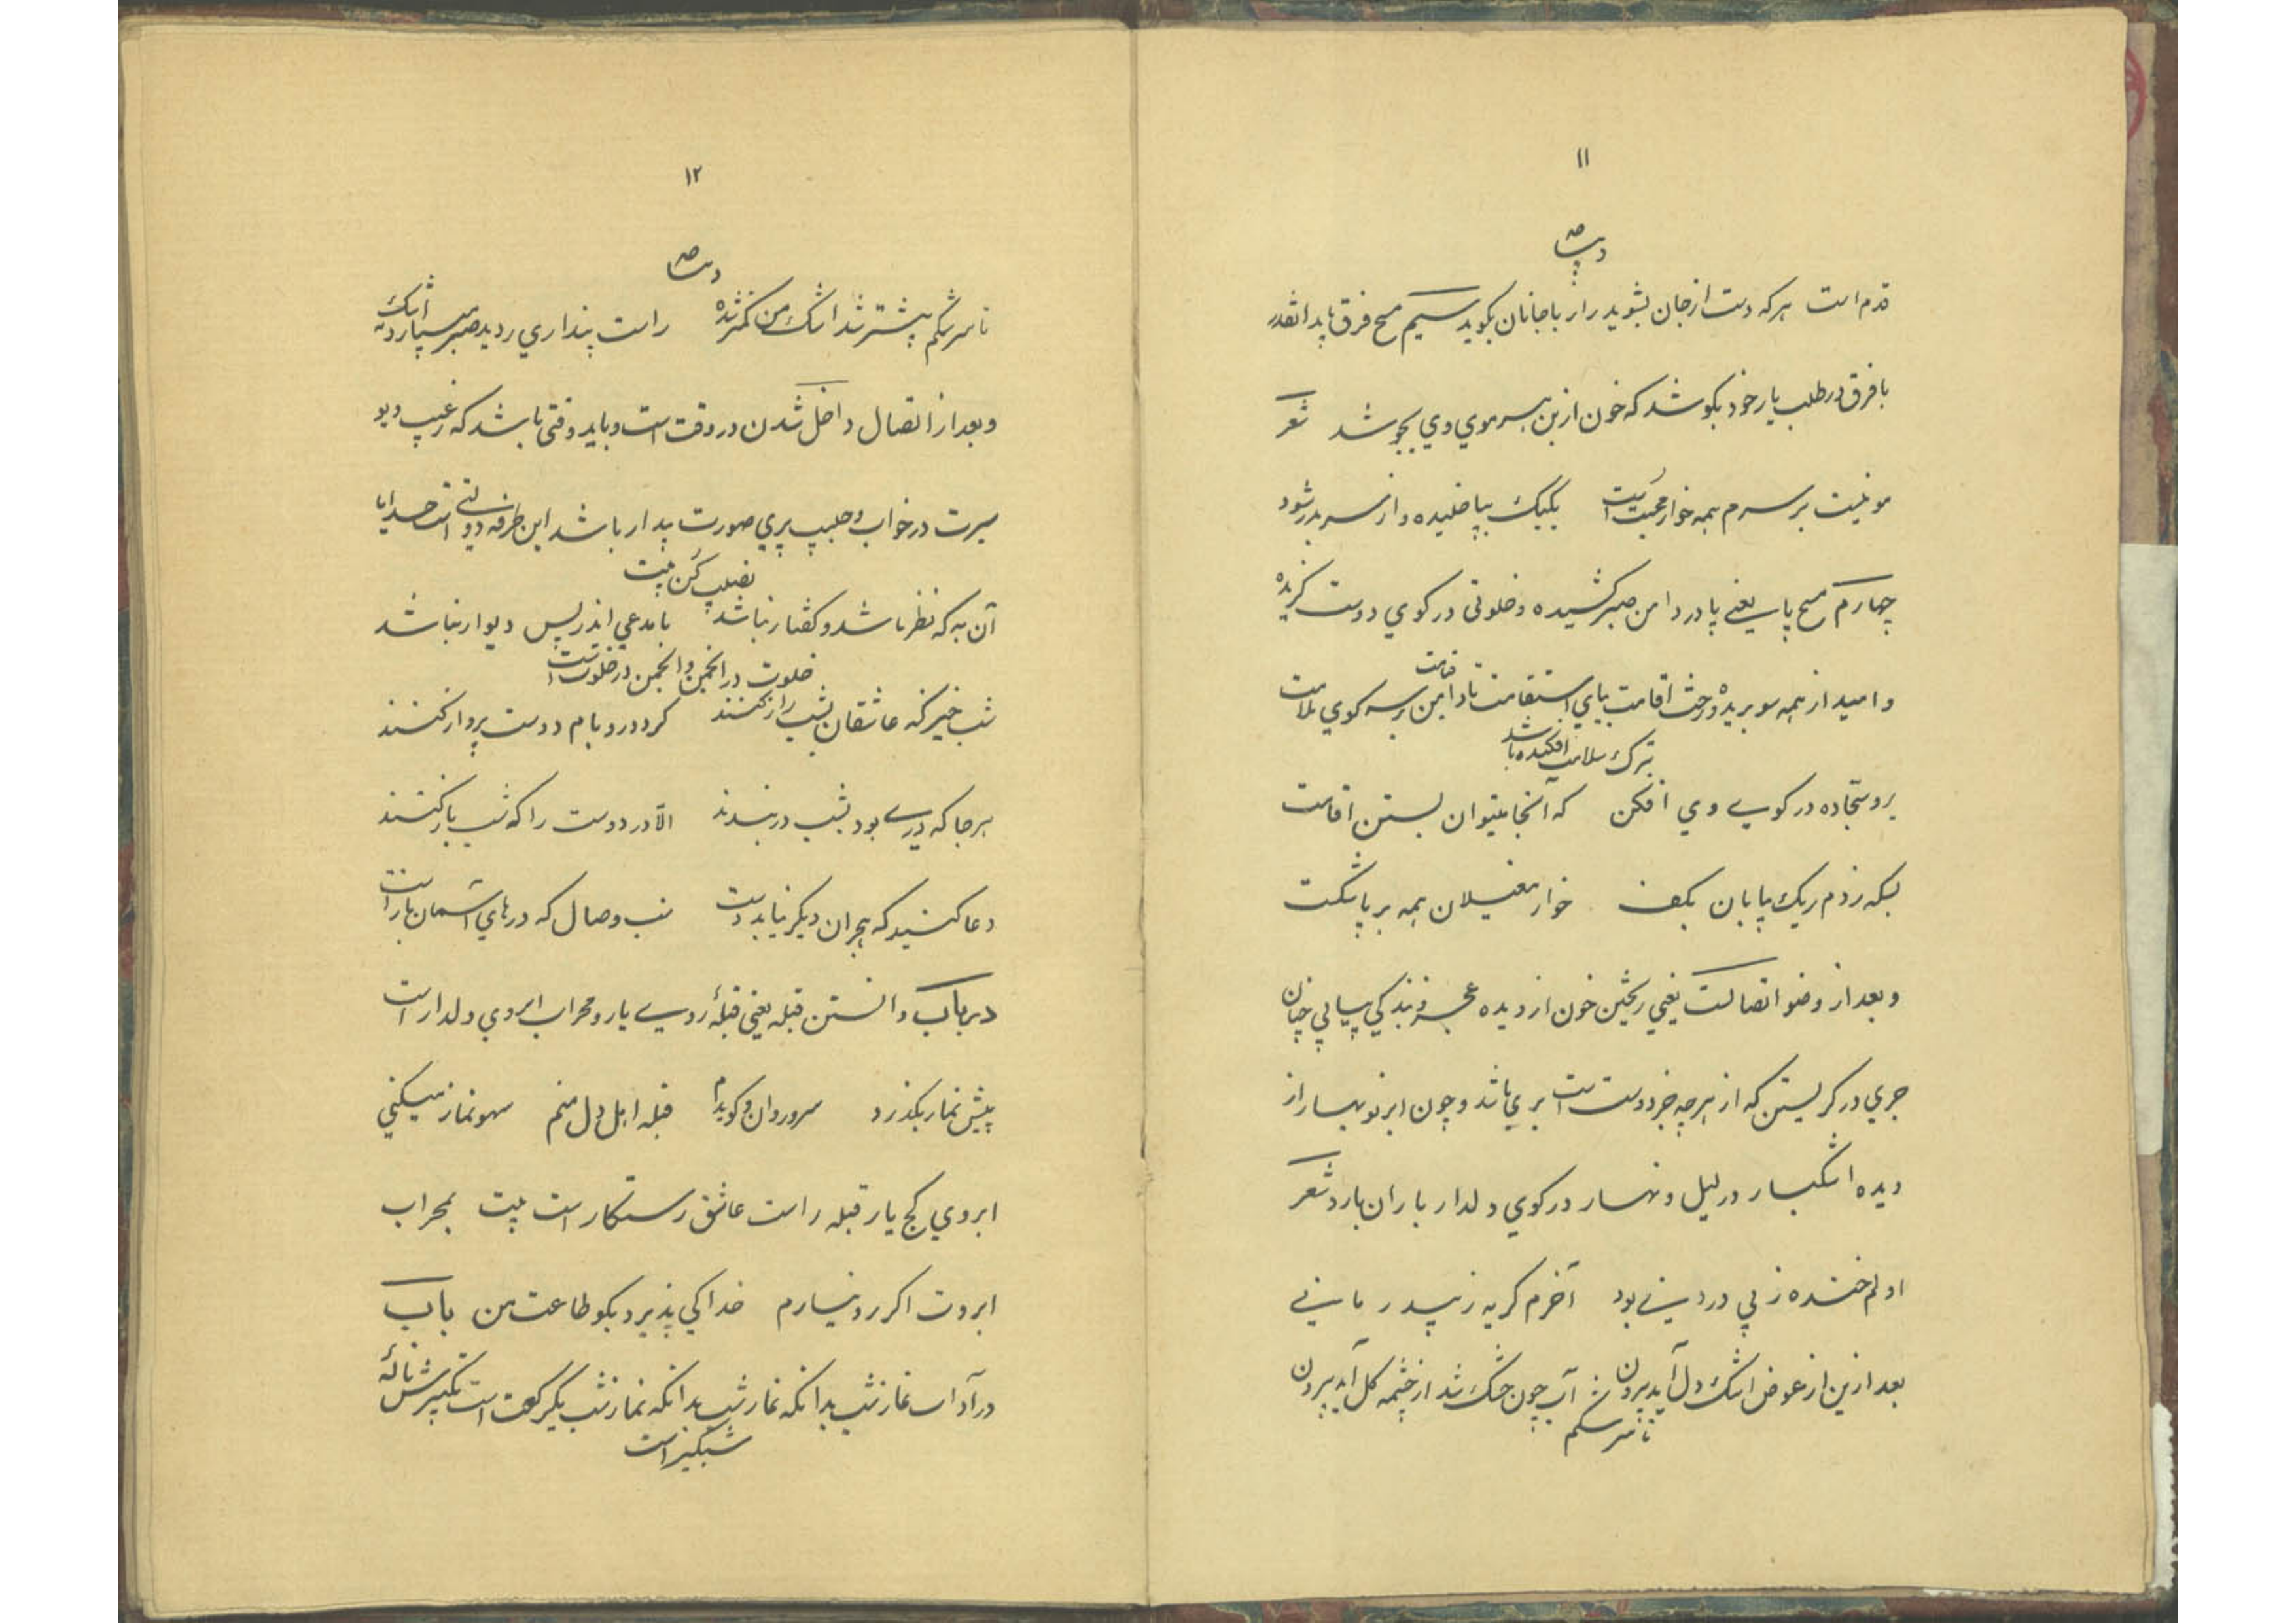 ۱۱
قدم است هرکه دست از جان بشوید راز با جانان بکوید سیم مسح فرق باید انقدر
با فرق در طلب یار خود بکوشد که خون از بن هر موی وی بجوشد شعر
مو نیست بر سرم همه خوار محبت است یکیک بپا خلیده و از سر بدر شود
چهارم مسح پا یعنے پا در دامن صبر کشیده و خلوتی در کوی دوست کزیده
و امید از همه سو بریده و رخت اقامت بپای استقامت تا دامن قیامت بر سر کوی ملامت
بترک سلامت افکنده باشد
برو سجّاده در کوے وی افکن که آنجا میتوان بستن اقامت
بسکه زدم ریک بیابان بکف خوار مغیلان همه بر پا شکست
و بعد از وضو اتصالست یعنی ریختن خون از دیده بعجز و بندکی پیاپی چنان
جری در کریستن که از هرچه جز دوست است بری باشد و چون ابر نوبهار از
دیده اشکبار در لیل و نهار در کوی دلدار باران بارد شعر
اولم خنده ز بی دردی بود آخرم کریه ز بیدرمانی
بعد ازین از عوض اشک دل آید بیرون آب چون خشک شد از چشمه کل آید بیرون
تا سرشکم
۱۲
تا سرشکم بیشتر شد اشک من کمتر شده راست پنداری ردیده صبر میبارد نه اشک
و بعد از اتصال داخل شدن در وقت است و باید وقتی باشد که رقیب دیو
سیرت در خواب و حبیب پری صورت بیدار باشد این طرفه دولتی است خدایا
نصیب کن بیت
آن به که نظر باشد و کفتار نباشد تا مدعی اندر پس دیوار نباشد
خلوت در انجمن و انجمن در خلوت است
شب خیز که عاشقان بشب راز کنند کرد در و بام دوست پرواز کنند
هر جا که درے بود بشب در بندند الّا در دوست را که شب باز کنند
دعا کنید که هجران دیکر نیابد دست شب وصال که درهای آسمان باز است
در باب دانستن قبله یعنی قبلهٔ روے یار و محراب ابروی دلدار است
پیش نماز بکذرد سرو روان و کویدم قبله اهل دل منم سهو نماز میکنی
ابروی کج یار قبله راست عاشق رستکار است بیت بمحراب
ابروت اکر رو نیارم خدا کی پذیرد بکو طاعت من باب
در آداب نماز شب بدانکه نماز شب بدانکه نماز شب یک رکعت است تکبیرش نالهٔ
شبکیر است